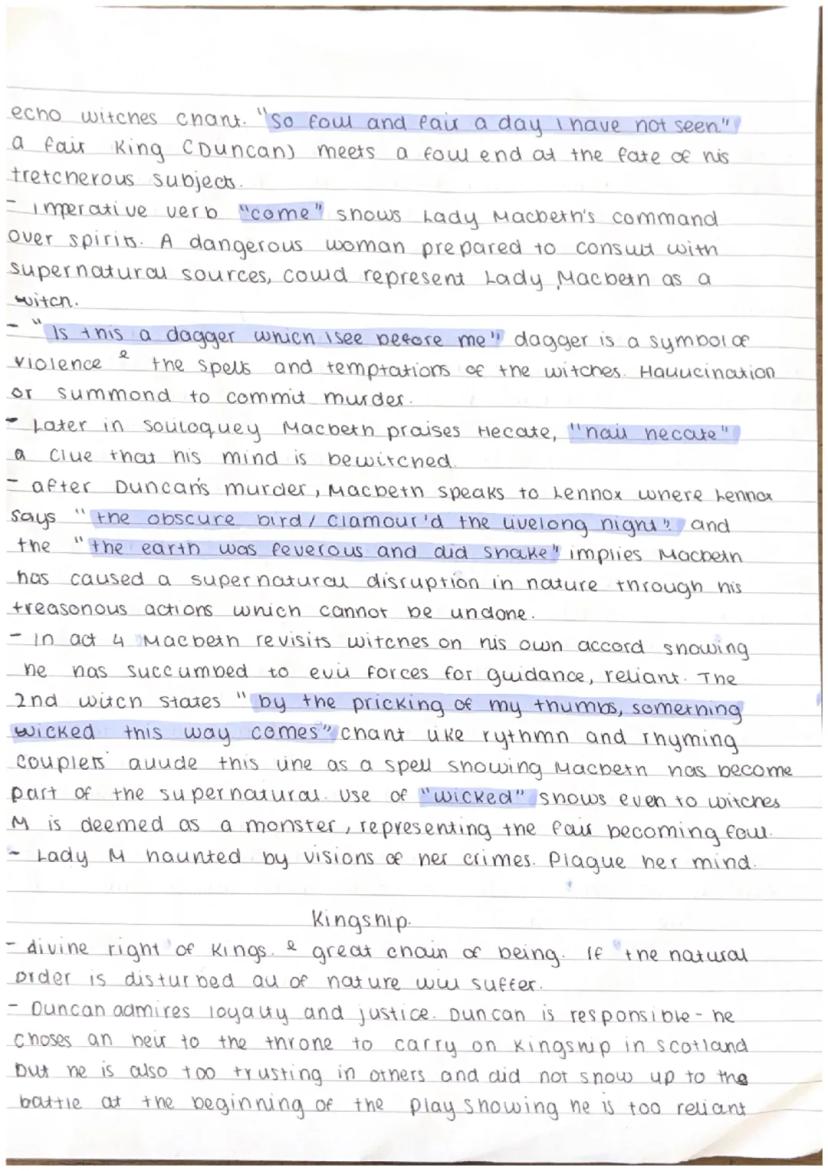 echo witches chant. "So foul and fair a day I have not seen"
a fair King (Duncan) meets a foul end at the fate of his
tretcherous subjects.
- imperative verb "come" shows Lady Macbeth's command
over spirits. A dangerous woman prepared to consult with
supernatural sources, could represent Lady Macbeth as a
witch.
- "Is this a dagger which I see before me" dagger is a symbol of
violence & the spells and temptations of the witches. Hallucination
or summond to commit murder.
- Later in souloquey Macbeth praises Hecate, "hail hecate"
a clue that his mind is bewitched.
- after Duncan's murder, Macbeth speaks to Lennox where Lennox
says "the obscure bird/ clamour'd the livelong night" and
the "the earth was feverous and did shake" implies Macbeth
has caused a supernatural disruption in nature through his
treasonous actions which cannot be undone.
- In act 4 Macbeth revisits witches on his own accord showing
he has succumbed to evil forces for guidance, reliant. The
2nd witch states "by the pricking of my thumbs, something
wicked this way comes" chant like rythmn and rhyming
couplets allude this line as a spell showing Macbeth has become
part of the supernatural. Use of "wicked" shows even to witches
M is deemed as a monster, representing the fair becoming foul.
- Lady M haunted by visions of her crimes. Plague her mind.
Kingship.
- divine right of Kings. & great chain of being. If the natural
order is disturbed all of nature will suffer.
- Duncan admires loyalty and justice. Duncan is responsible - he
choses an heir to the throne to carry on Kingship in Scotland
but he is also too trusting in others and did not show up to the
battle at the beginning of the play showing he is too reliant